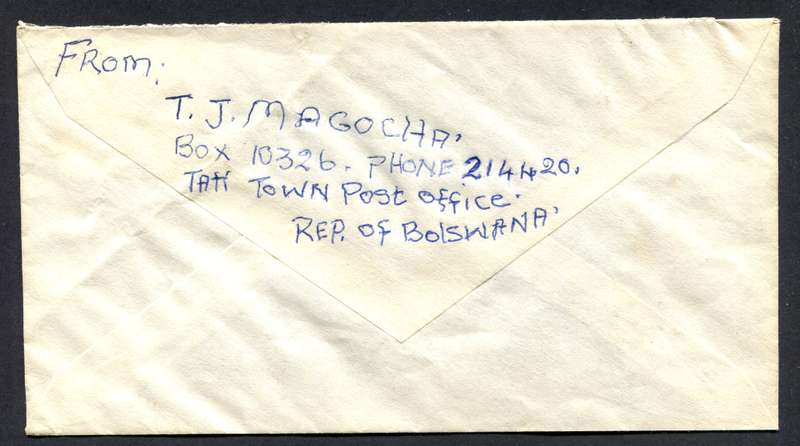 FROM:
T. J. MAGOCHA.
BOX 10326. PHONE 214420.
TATI TOWN POST OFFICE.
REP. OF BOTSWANA.